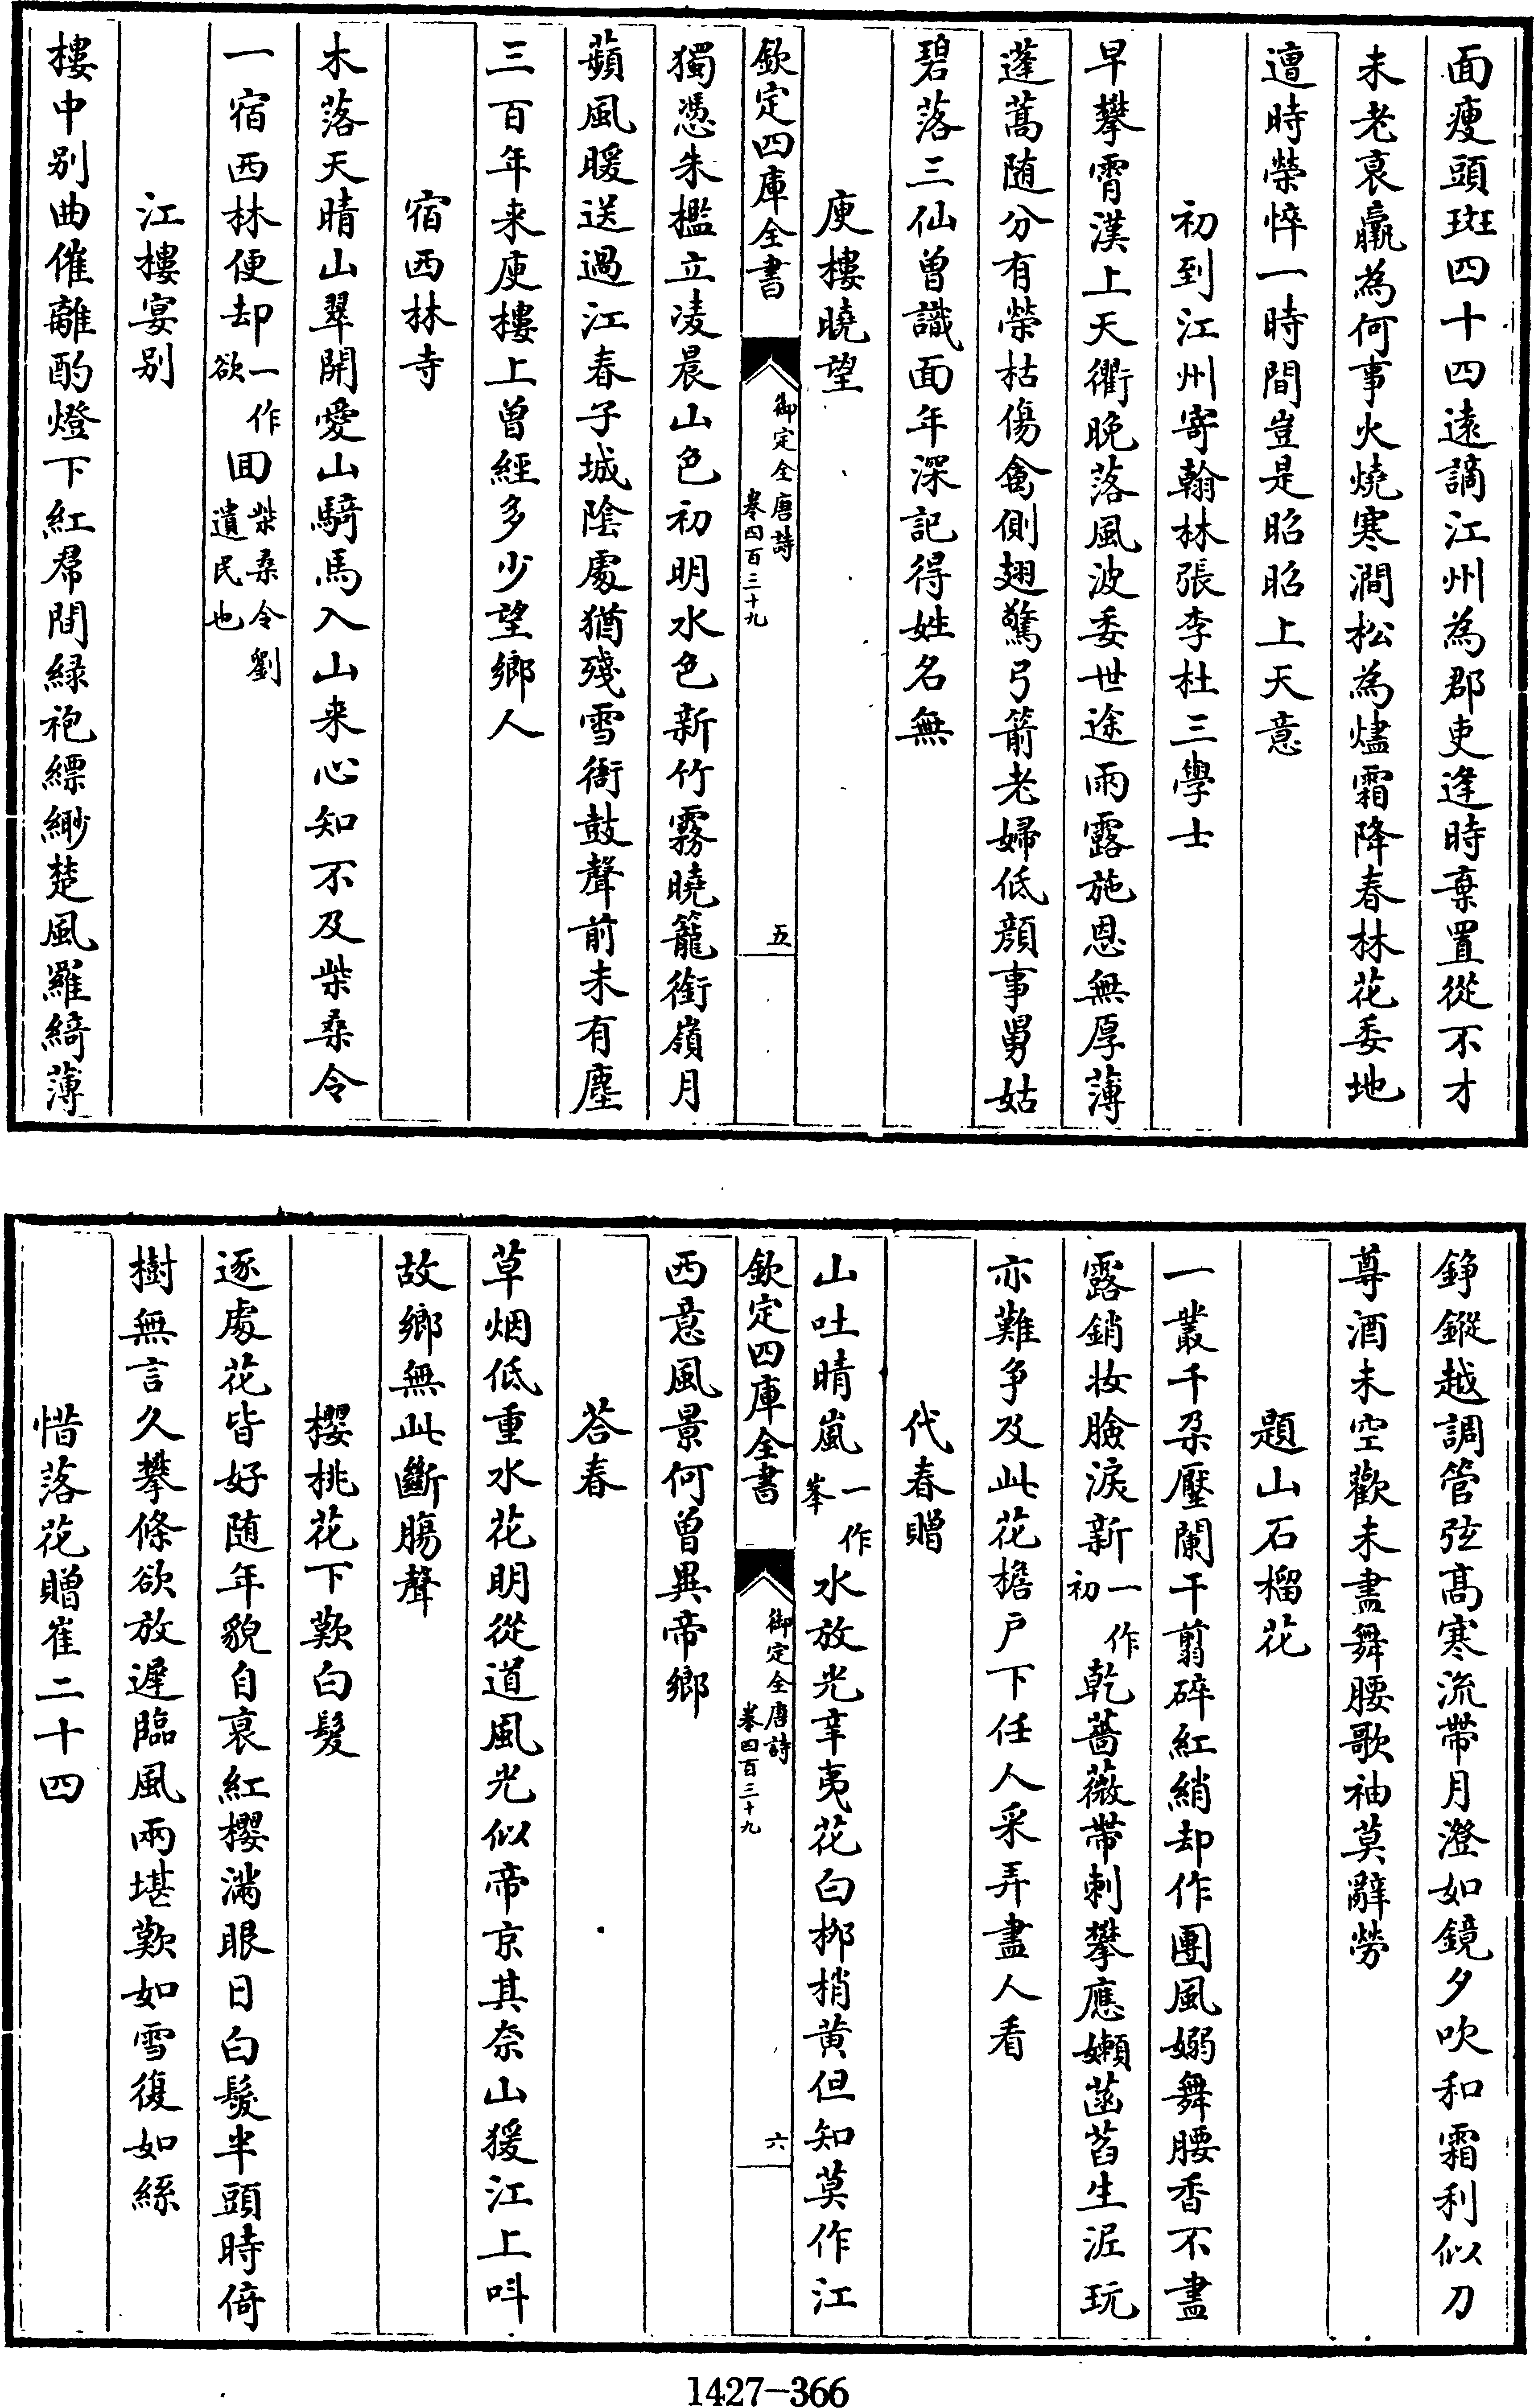 面瘦頭斑四十四遠謫江州為郡吏逢時棄置從不才
未老衰羸為何事火燒寒澗松為燼霜降春林花委地
遭時榮悴一時間豈是昭昭上天意
初到江州寄翰林張李杜三學士
早攀霄漢上天衢晚落風波委世途雨露施恩無厚薄
蓬蒿随分有榮枯傷禽側翅驚弓箭老婦低顔事舅姑
碧落三仙曾識面年深記得姓名無
庾樓曉望
欽定四庫全書
御定全唐詩
卷四百三十九
五
獨憑朱檻立凌晨山色初明水色新竹霧曉籠銜嶺月
蘋風暖送過江春子城陰處猶殘雪衙鼓聲前未有塵
三百年来庾樓上曾經多少望鄉人
宿西林寺
木落天晴山翠開愛山騎馬入山来心知不及柴桑令
一宿西林便却一作欲回柴桑令劉遺民也
江樓宴别
樓中别曲催離酌燈下紅帬間緑袍縹緲楚風羅綺薄
錚鏦越調管弦髙寒流帶月澄如鏡夕吹和霜利似刀
尊酒未空歡未盡舞腰歌袖莫辭勞
題山石榴花
一叢千朶壓闌干翦碎紅綃却作團風嫋舞腰香不盡
露銷妝臉淚新一作初乾薔薇帶刺攀應嬾菡萏生泥玩
亦難争及此花檐户下任人采弄盡人看
代春贈
山吐晴嵐一作峯水放光辛夷花白桞梢黄但知莫作江
欽定四庫全書
御定全唐詩
卷四百三十九
六
西意風景何曾異帝鄉
荅春
草烟低重水花明從道風光似帝京其奈山猨江上呌
故鄉無此斷腸聲
櫻桃花下歎白髮
逐處花皆好随年貌自衰紅櫻滿眼日白髮半頭時倚
樹無言久攀條欲放遲臨風兩堪歎如雪復如絲
惜落花贈崔二十四
1427-366